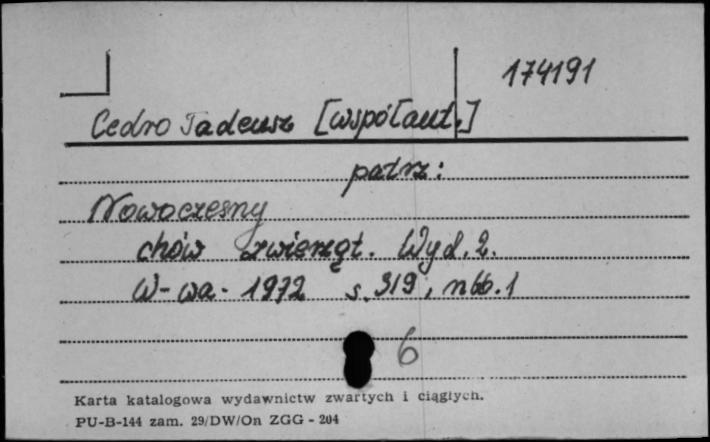 174191
Cedro Tadeusz [współaut.]
patrz:
Nowoczesny
chów zwierząt. Wyd. 2.
W-wa. 1972 s. 319, nbb. 1
6
Karta katalogowa wydawnictw zwartych i ciągłych.
PU-B-144 zam. 29/DW/On ZGG - 204